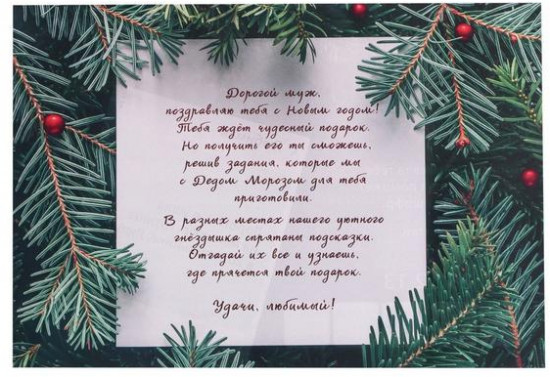 Дорогой муж,
поздравляю тебя с Новым годом!
Тебя ждёт чудесный подарок.
Но получить его ты сможешь,
решив задания, которые мы
с Дедом Морозом для тебя
приготовили.
В разных местах нашего уютного
гнёздышка спрятаны подсказки.
Отгадай их все и узнаешь,
где прячется твой подарок.
Удачи, любимый!